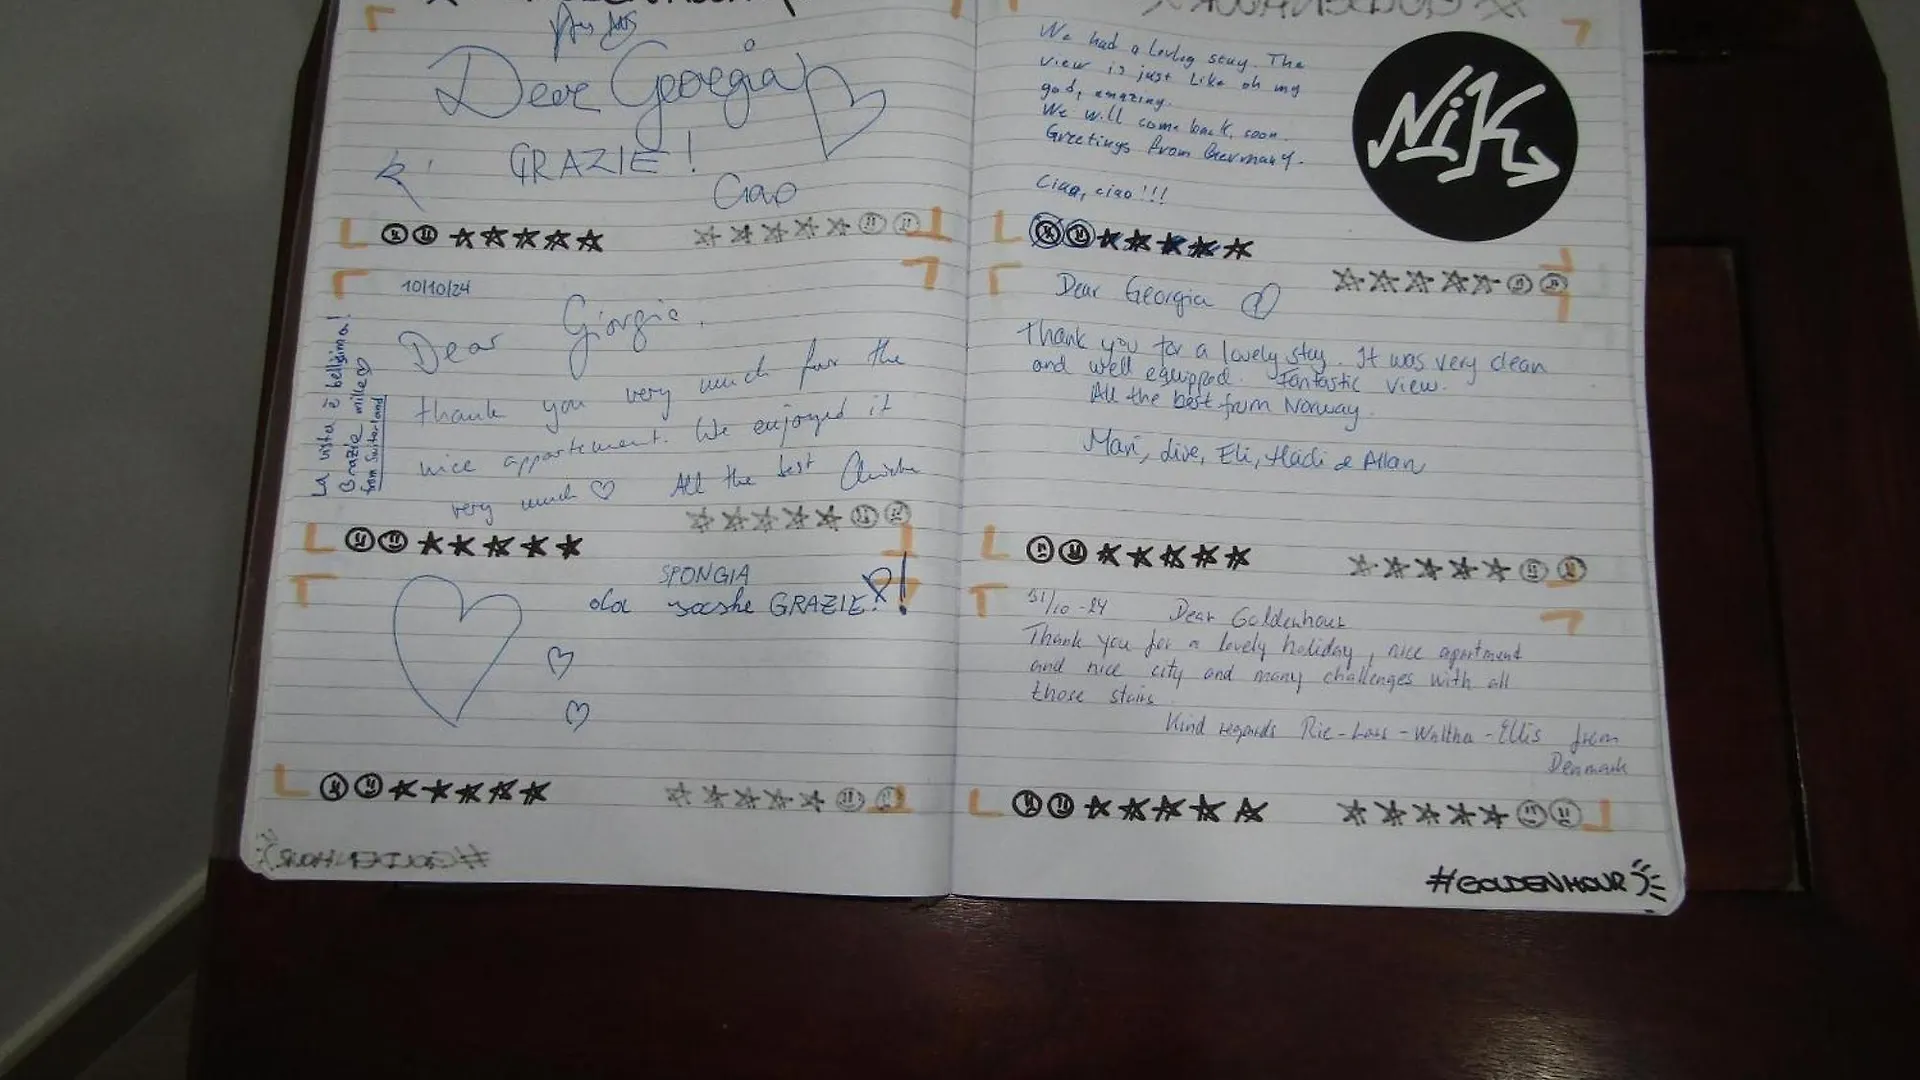 Dear Georgia
GRAZIE!
Ciao
10/10/24
Dear Giorgia,
thank you very much for the
nice appartement. We enjoyed it
very much ♡ All the best
La vista è bellissima!
Grazie mille ♡
from Switzerland
SPONGIA
GRAZIE!
We had a lovley stay. The
view is just like oh my
god, amazing.
We will come back, soon.
Greetings from Germany.
Ciao, ciao!!!
NiK
Dear Georgia
Thank you for a lovely stay. It was very clean
and well equipped. Fantastic view.
All the best from Norway.
Mari, Live, Eli, Hadi & Allan
31/10-24 Dear Goldenhour
Thank you for a lovely holiday, nice apartment
and nice city and many challenges with all
those stairs
Kind regards Rie-Lars-Waltha-Ellis from
Denmark
#GOLDENHOUR